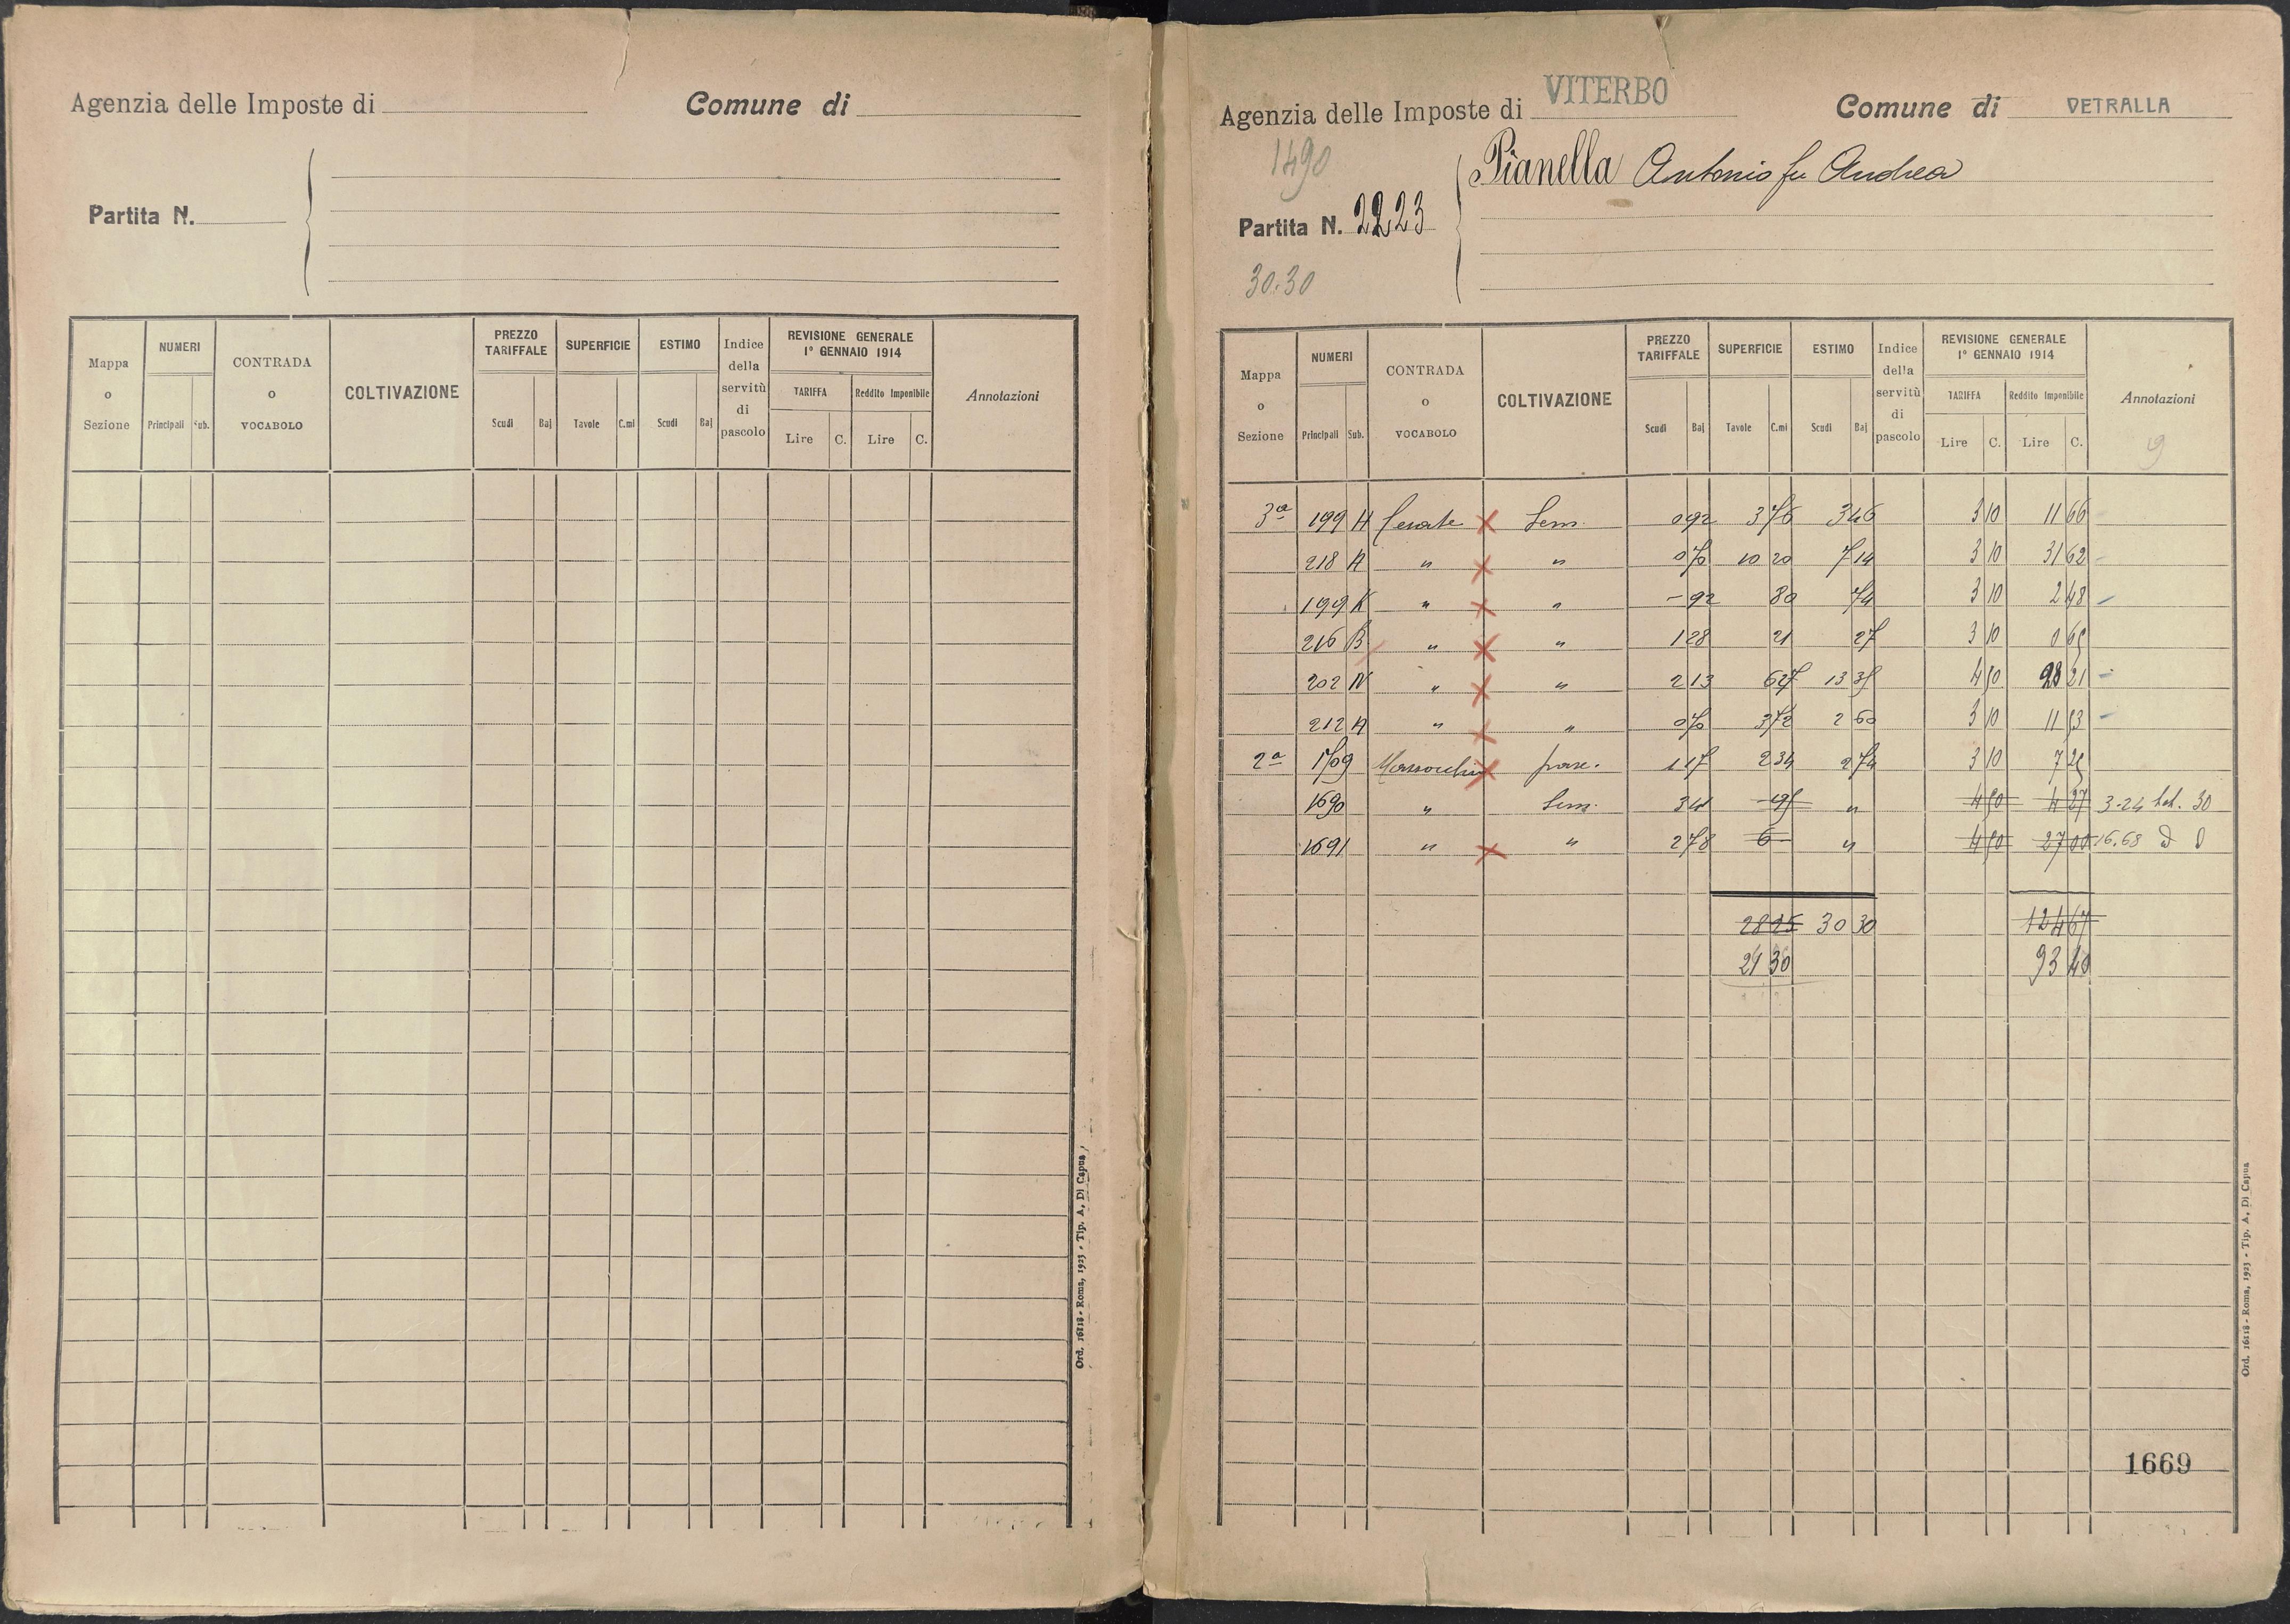 Agenzia delle Imposte di
Comune di
Partita N.
Mappa o Sezione
NUMERI
Principali
Sub.
CONTRADA o VOCABOLO
COLTIVAZIONE
PREZZO TARIFFALE
Scudi
Baj
SUPERFICIE
Tavole
C.mi
ESTIMO
Scudi
Baj
Indice della servitù di pascolo
REVISIONE GENERALE
1° GENNAIO 1914
TARIFFA
Lire
C.
Reddito Imponibile
Lire
C.
Annotazioni
Ord. 16118 - Roma, 1923 - Tip. A. Di Capua
Agenzia delle Imposte di VITERBO
Comune di VETRALLA
1490
Pianella Antonio fu Andrea
Partita N. 2223
30.30
Mappa o Sezione
NUMERI
Principali
Sub.
CONTRADA o VOCABOLO
COLTIVAZIONE
PREZZO TARIFFALE
Scudi
Baj
SUPERFICIE
Tavole
C.mi
ESTIMO
Scudi
Baj
Indice della servitù di pascolo
REVISIONE GENERALE
1° GENNAIO 1914
TARIFFA
Lire
C.
Reddito Imponibile
Lire
C.
Annotazioni
3a 199 H Cerate Sem. 0 92 3 76 3 46 3 10 11 66
218 A " " 0 70 10 20 7 14 3 10 31 62
199 K " " - 92 80 74 3 10 2 48
216 B " " 1 28 21 27 3 10 0 65
202 N " " 2 13 6 27 13 35 4 50 28 21
212 A " " 0 70 3 72 2 60 3 10 11 53
2a 1709 pasc. 1 17 2 34 2 74 3 10 7 25
1690 " Sem. 3 41 95 " 4 50 4 27 3-24 30
1691 " " 2 78 6 " 4 50 27 00 16.68
28 25 30 30 124 67
27 30 93 40
1669
Ord. 16118 - Roma, 1923 - Tip. A. Di Capua